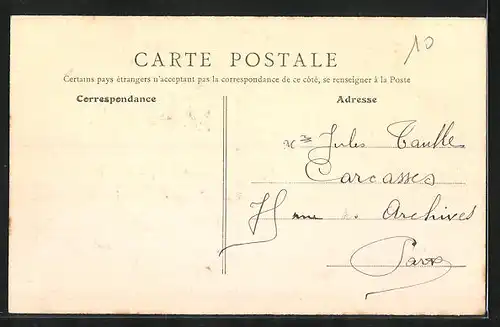 10
CARTE POSTALE
Certains pays étrangers n'acceptant pas la correspondance de ce côté, se renseigner à la Poste
Correspondance
Adresse
Jules
Carcasses
Archives
Paris